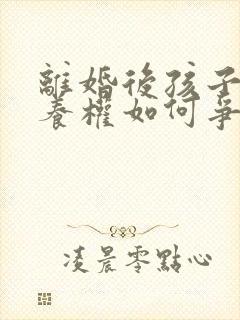 離婚後孩子
養權如何爭
凌晨零點心